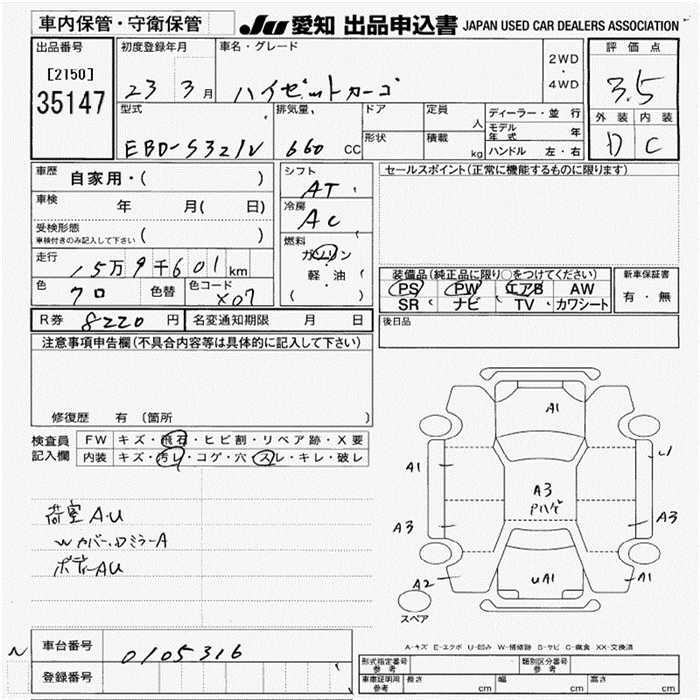 車内保管・守衛保管
JU 愛知 出品申込書 JAPAN USED CAR DEALERS ASSOCIATION
出品番号
[2150]
35147
初度登録年月
23 3月
車名・グレード
ハイゼットカーゴ
2WD
・
4WD
評価点
3.5
外装 内装
D C
型式
EBD-S321V
排気量
660 CC
ドア
形状
定員
人
積載
kg
ディーラー・並行
モデル年式 年
ハンドル 左・右
車歴 自家用・( )
車検 年 月( 日)
受検形態
車検付きのみ記入して下さい ( )
走行
15万9千601km
色 クロ 色替 色コード X07
シフト
AT
冷房
AC
燃料
ガソリン
軽・油
( )
R券 8220 円 名変通知期限 月 日
セールスポイント(正常に機能するものに限ります)
装備品(純正品に限り○をつけてください)
PS PW エアB AW
SR ナビ TV カワシート
新車保証書
有・無
後日品
注意事項申告欄(不具合内容等は具体的に記入して下さい)
修復歴 有 〔箇所
検査員
記入欄
FW キズ・飛石・ヒビ割・リペア跡・X要
内装 キズ・汚レ・コゲ・穴・スレ・キレ・破レ
荷室AU
Wカバー、Dミラ-A
ボディ-AU
A1
A1
A3
Pハゲ
A3
A3
A2
UA1
A1
スペア
A-キズ E-エクボ U-凹み W-補修跡 S-サビ C-腐食 XX-交換済
車台番号 0105316
登録番号
型式指定番号
参考
類別区分番号
参考
車庫証明用
参考
長さ cm 幅 cm 高さ cm